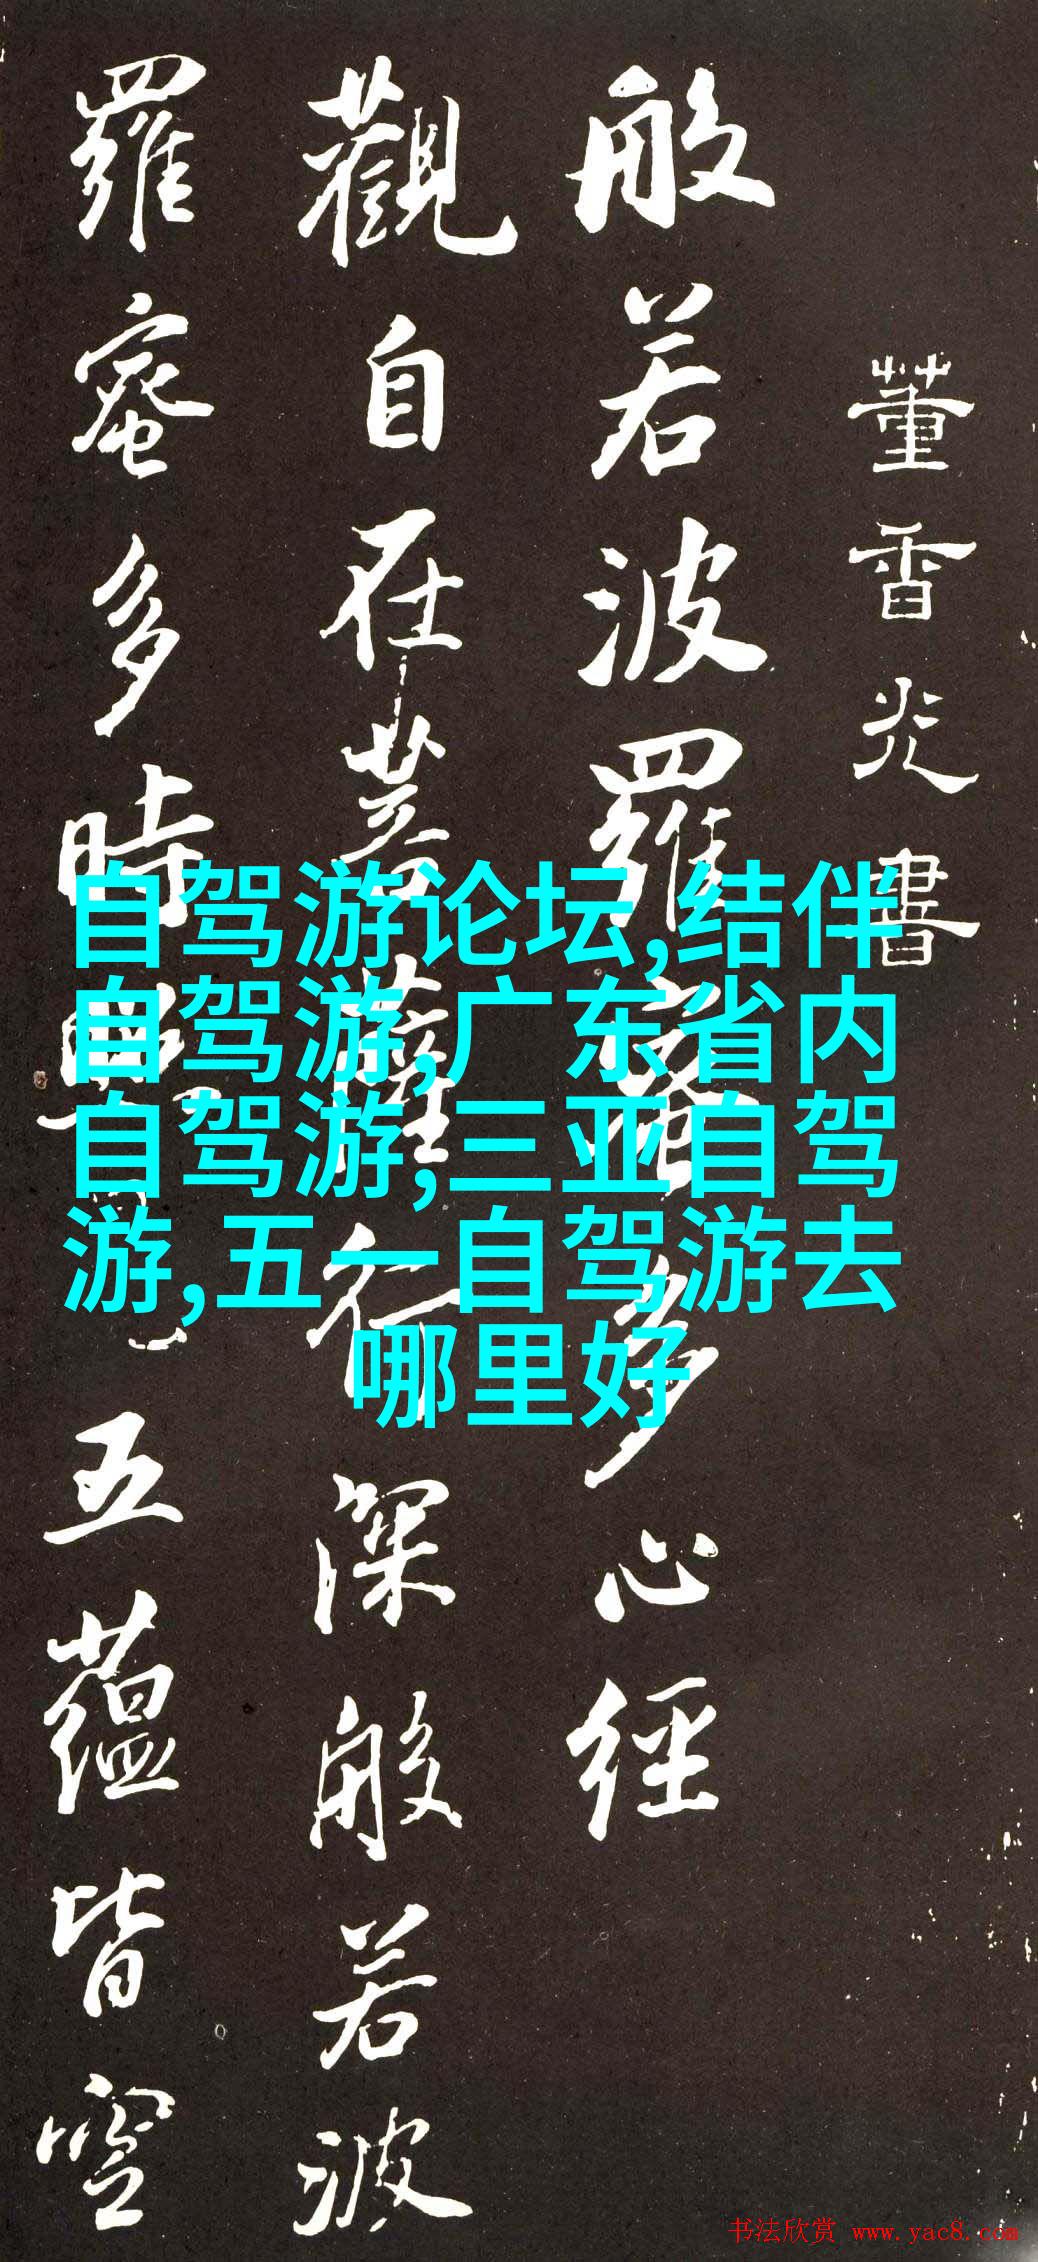 董香光書
般若波羅蜜多心經
觀自在菩薩行深般若波
羅蜜多時五蘊皆空
自驾游论坛,结伴
自驾游,广东省内
自驾游,三亚自驾
游,五一自驾游去
哪里好
书法欣赏 www.yac8.com